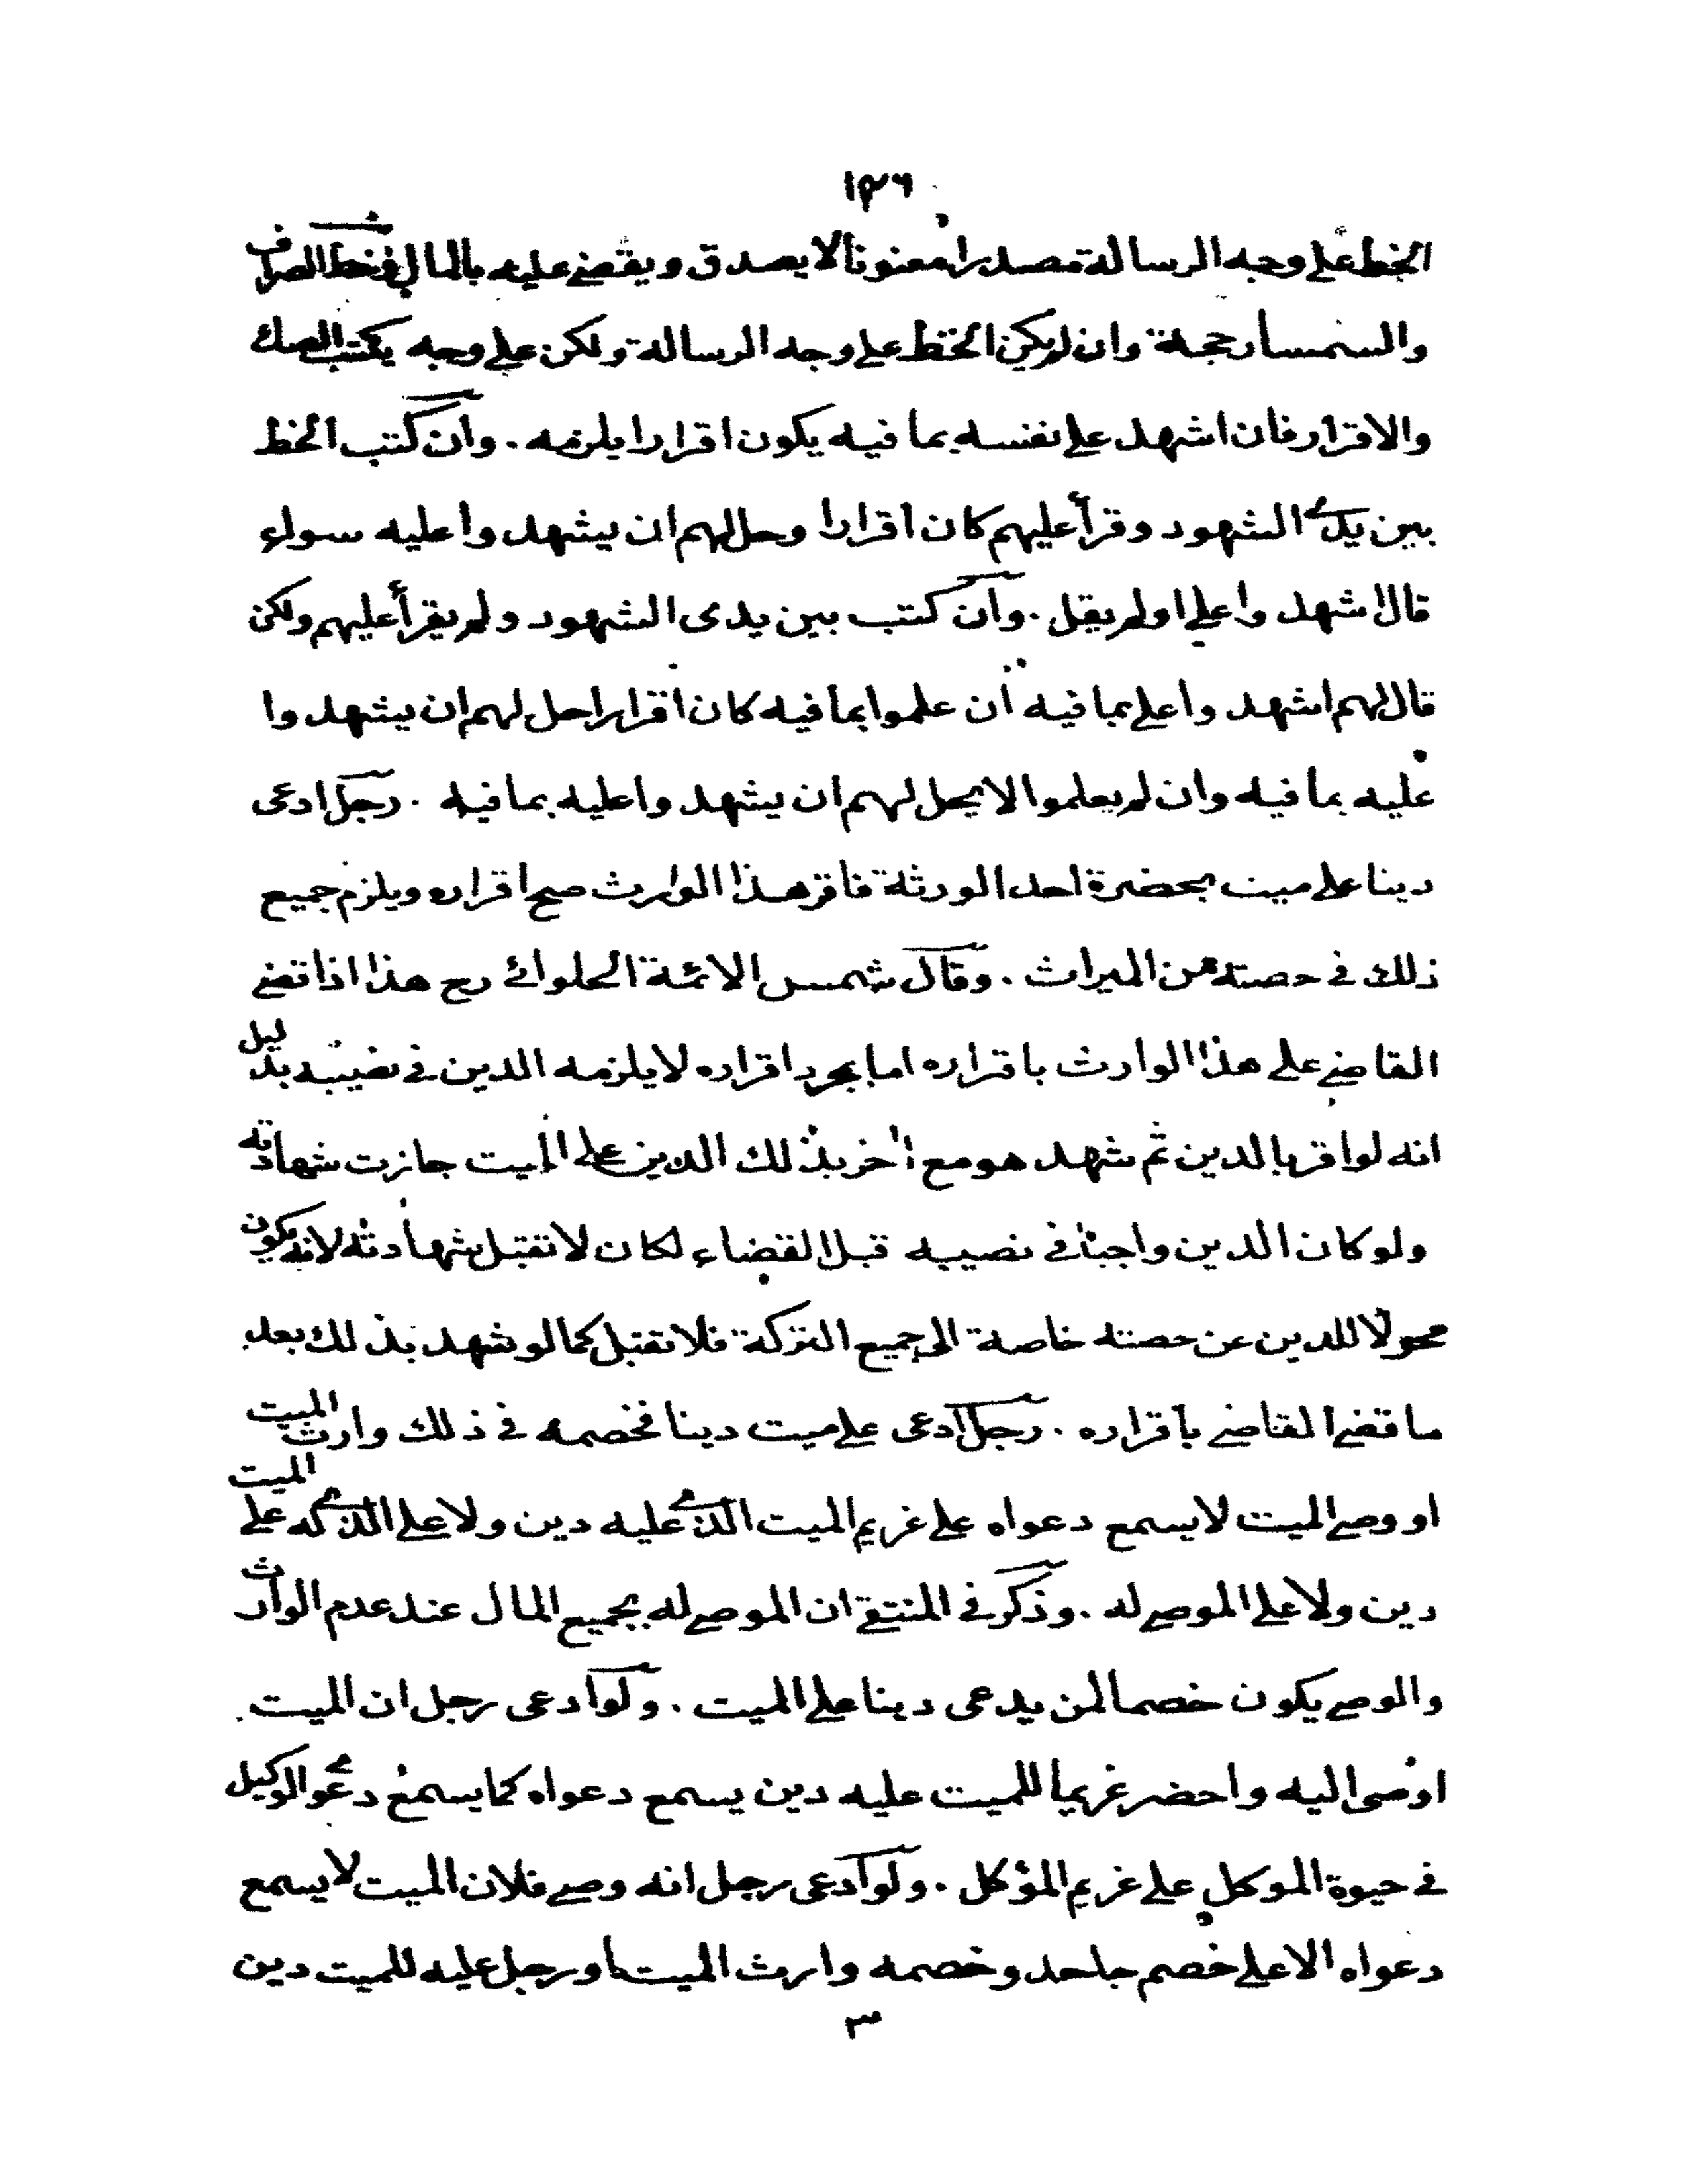 ١٣٦
الخط على وجه الرسالة مصدرا معنونا لا يصدق ويقضى عليه بالمال فى خط الصراف
والسمسار حجة وان لم يكن الخط على وجه الرسالة ولكن على وجه يكتب الصك
والاقرار فان اشهد على نفسه بما فيه يكون اقرارا يلزمه . وان كتب الخط
بين يدى الشهود وقرأ عليهم كان اقرارا وحل لهم ان يشهدوا عليه سواء
قال اشهدوا على او لم يقل . وان كتب بين يدى الشهود ولم يقرأ عليهم ولكن
قال لهم اشهدوا على بما فيه ان علموا بما فيه كان اقرارا حل لهم ان يشهدوا
عليه بما فيه وان لم يعلموا لا يحل لهم ان يشهدوا عليه بما فيه . رجل ادعى
دينا على ميت بحضرة احد الورثة فاقر هذا الوارث صح اقراره ويلزم جميع
ذلك فى حصته من الميراث . وقال شمس الائمة الحلوائى رح هذا اذا قضى
القاضى على هذا الوارث باقراره اما بمجرد اقراره لا يلزمه الدين فى نصيبه بدليل
انه لو اقر بالدين ثم شهد هو مع اخر بذلك الدين على الميت جازت شهادته
ولو كان الدين واجبا فى نصيبه قبل القضاء لكان لا تقبل شهادته لانه يكون
محولا للدين عن حصته خاصة الى جميع التركة فلا تقبل كما لو شهد بذلك بعد
ما قضى القاضى باقراره . رجل ادعى على ميت دينا فخصمه فى ذلك وارث الميت
او وصى الميت لا يسمع دعواه على غريم الميت الذى عليه دين ولا على الذى له على الميت
دين ولا على الموصى له . وذكر فى المنتقى ان الموصى له بجميع المال عند عدم الوارث
والوصى يكون خصما لمن يدعى دينا على الميت . ولو ادعى رجل ان الميت
اوصى اليه واحضر غريما للميت عليه دين يسمع دعواه كما يسمع دعوى الوكيل
فى حيوة الموكل على غريم المؤكل . ولو ادعى رجل انه وصى فلان الميت لا يسمع
دعواه الا على خصم جاحد وخصمه وارث الميت او رجل عليه للميت دين
٣